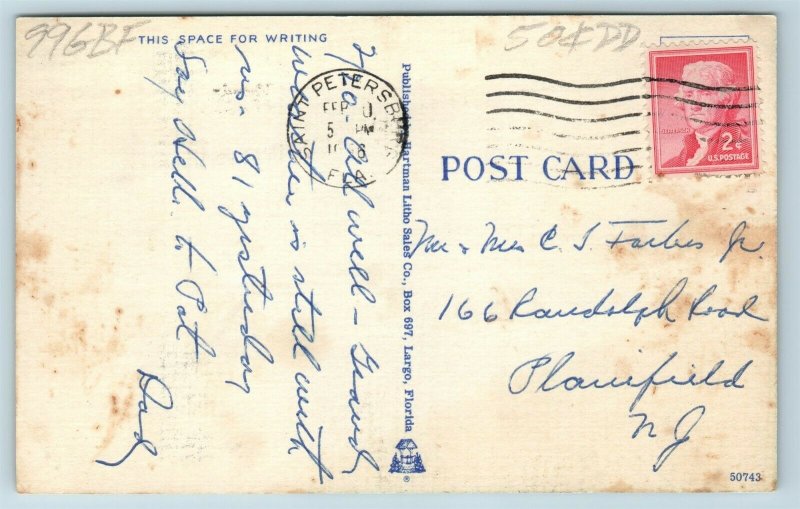 996BF
50¢DD
THIS SPACE FOR WRITING
2/10 - All well - Grand
weather is still with
us - 81 yesterday
Say Hello to Pat
Dad
SAINT PETERSBURG
FEB
5 PM
FLA.
Published by Hartman Litho Sales Co., Box 697, Largo, Florida
®
POST CARD
JEFFERSON
2¢
U.S. POSTAGE
Mr & Mrs C. S. Forbes Jr.
166 Randolph Road
Plainfield
N J
50743